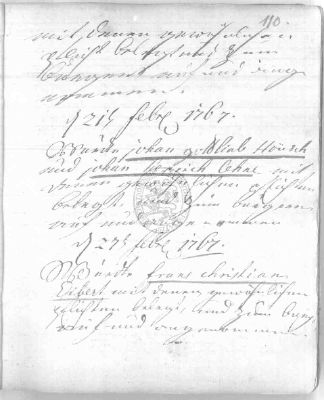 110.
mit denen gewöhnlichen
Pflicht belegt und zum
Burgern auf und ange
nommen.
d 21t febr 1767.
Wurde johan gottlieb Hönsch
und johan Henrich Cohne mit
denen gewöhnlichen pflichten
belegt und zum burgern
auf und angenommen
d 27t febr 1767.
Wurde frans christian
Eckert mit denen gewöhnlichen
pflichten belegt, und zum burger
auf und angenommen